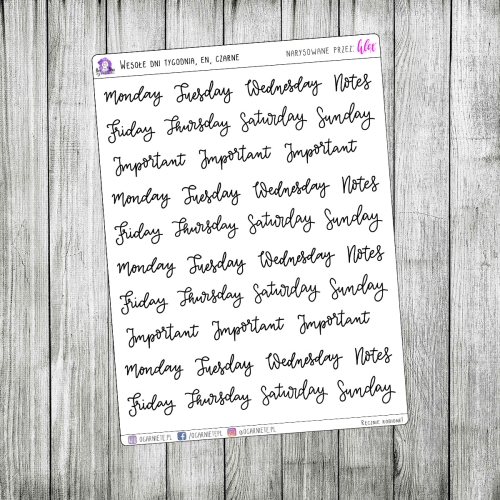 Wesołe dni tygodnia, en, czarne narysowane przez: Alex
Monday Tuesday Wednesday Notes
Friday Thursday Saturday Sunday
Important Important Important
Monday Tuesday Wednesday Notes
Friday Thursday Saturday Sunday
Monday Tuesday Wednesday Notes
Friday Thursday Saturday Sunday
Important Important Important
Monday Tuesday Wednesday Notes
Friday Thursday Saturday Sunday
@ogarniete.pl /ogarnietepl @ogarniete.pl Ręcznie robione!